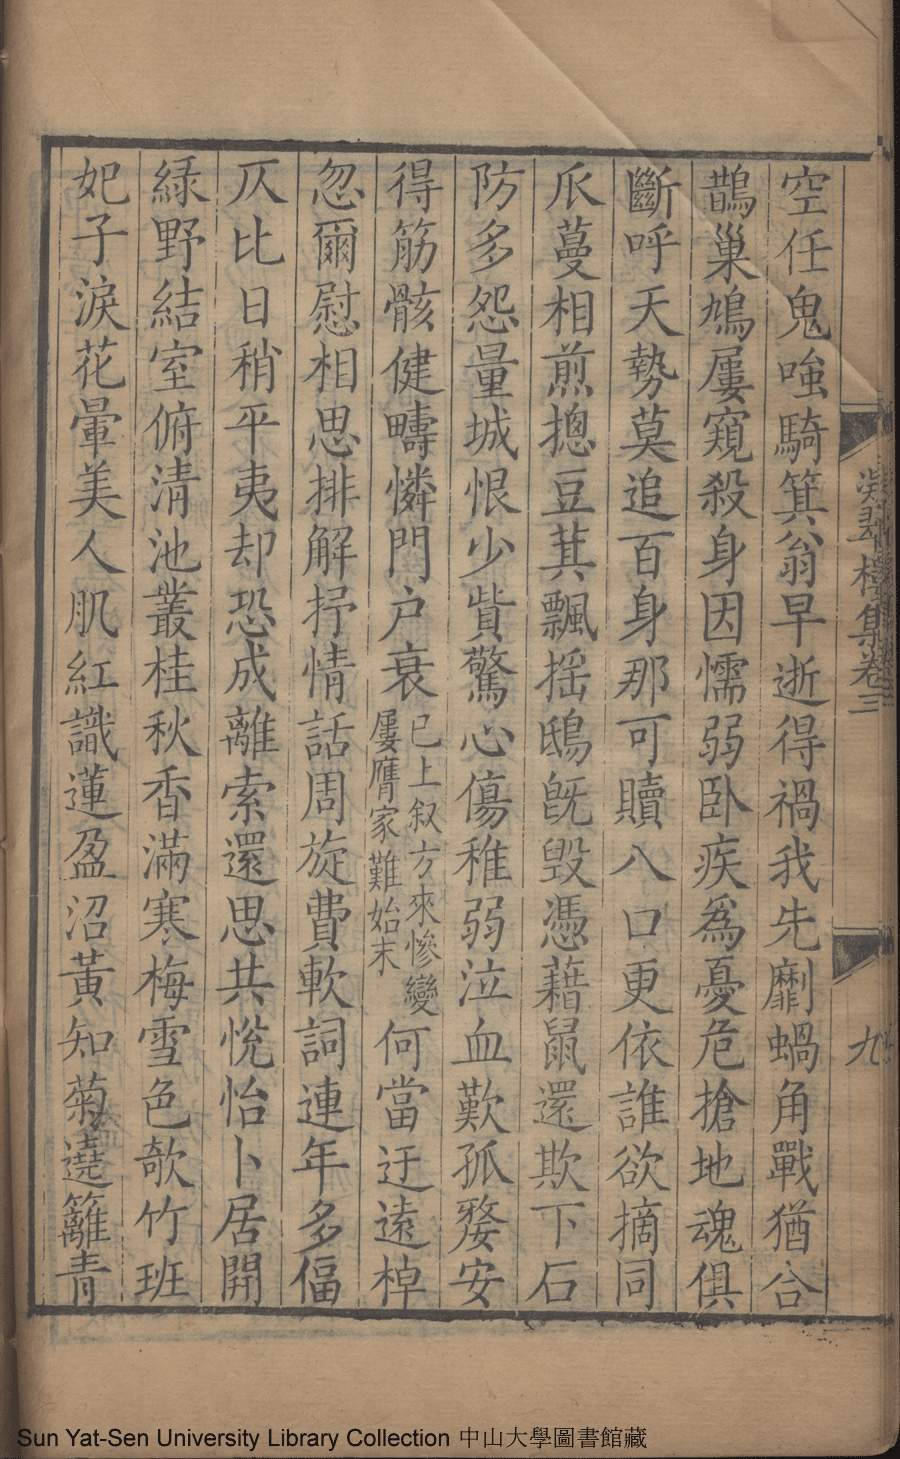 空任鬼嗤騎箕翁早逝得禍我先劘蝸角戰猶合
鵲巢鳩屢窺殺身因懦弱卧疾爲憂危搶地魂俱
斷呼天勢莫追百身那可贖八口更依誰欲摘同
瓜蔓相煎摠豆萁飄摇鴟旣毁憑藉鼠還欺下石
防多怨量城恨少貲驚心傷稚弱泣血歎孤嫠安
得筋骸健疇憐門户衰已上叙方來慘變屢膺家難始末何當迂遠棹
忽爾慰相思排解抒情話周旋費軟詞連年多偪
仄比日稍平夷却恐成離索還思共悅怡卜居開
緑野結室俯清池叢桂秋香滿寒梅雪色欹竹班
妃子淚花暈美人肌紅識蓮盈沼黃知菊遶籬青
凝翠樓集卷三
九
Sun Yat-Sen University Library Collection 中山大學圖書館藏